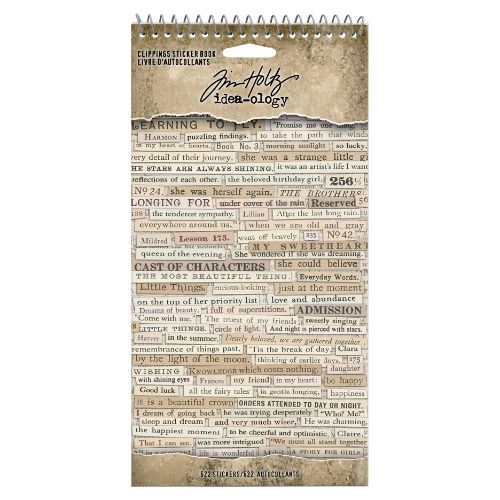 CLIPPINGS STICKER BOOK
LIVRE D'AUTOCOLLANTS
Tim Holtz
idea-ology
LEARNING TO FLY. "Promise me one thing
HARMON puzzling findings. to take the path that winds
in my heart of hearts. Book No. 3. morning sunlight so lucky.
very detail of their journey. she was a strange little gi
THE STARS ARE ALWAYS SHINING. it was an artist's life I want
reflections of each other. the beloved birthday girl. 256¼
No 24. she was herself again. THE BROTHERS
LONGING FOR under cover of the rain Reserved
138 the tenderest sympathy. Lillian After the last long rain.
everywhere around us. when we are old and gray
Mildred Lesson 175. went off bravely. 235 No 42.
MY SWEETHEART
queen of the evening. She wondered if she was dreaming.
CAST OF CHARACTERS she could believe
THE MOST BEAUTIFUL THING. Everyday Words.
Little Things. curious-looking just at the moment
on the top of her priority list love and abundance
Dreams of beauty. full of superstitions. ADMISSION
"Come with me." The truest of my friends sweetly singing
LITTLE THINGS. circle of light. And night is pierced with stars.
Harvey in the summer. Dearly beloved, we are gathered together
remembrance of things past. 'Tis the break of day. Clara
by the light of the moon. thinking of earlier days. 175
WISHING KNOWLEDGE which costs nothing. daughter
with shining eyes Frances my friend in my heart: be happy
Good luck all the fairy tales. in gentle longing, happiness
it is a beautiful crown ORDERS ATTENDED TO DAY OR NIGHT.
I dream of going back she was trying desperately "Who? Me?"
sleep and dream and very much wiser, He was charming.
the happiest moment to be cheerful and optimistic. Claire,
That I can see. was more intrigued "We must all stand together
A STORY FOR GIRLS
622 STICKERS/622 AUTOCOLLANTS